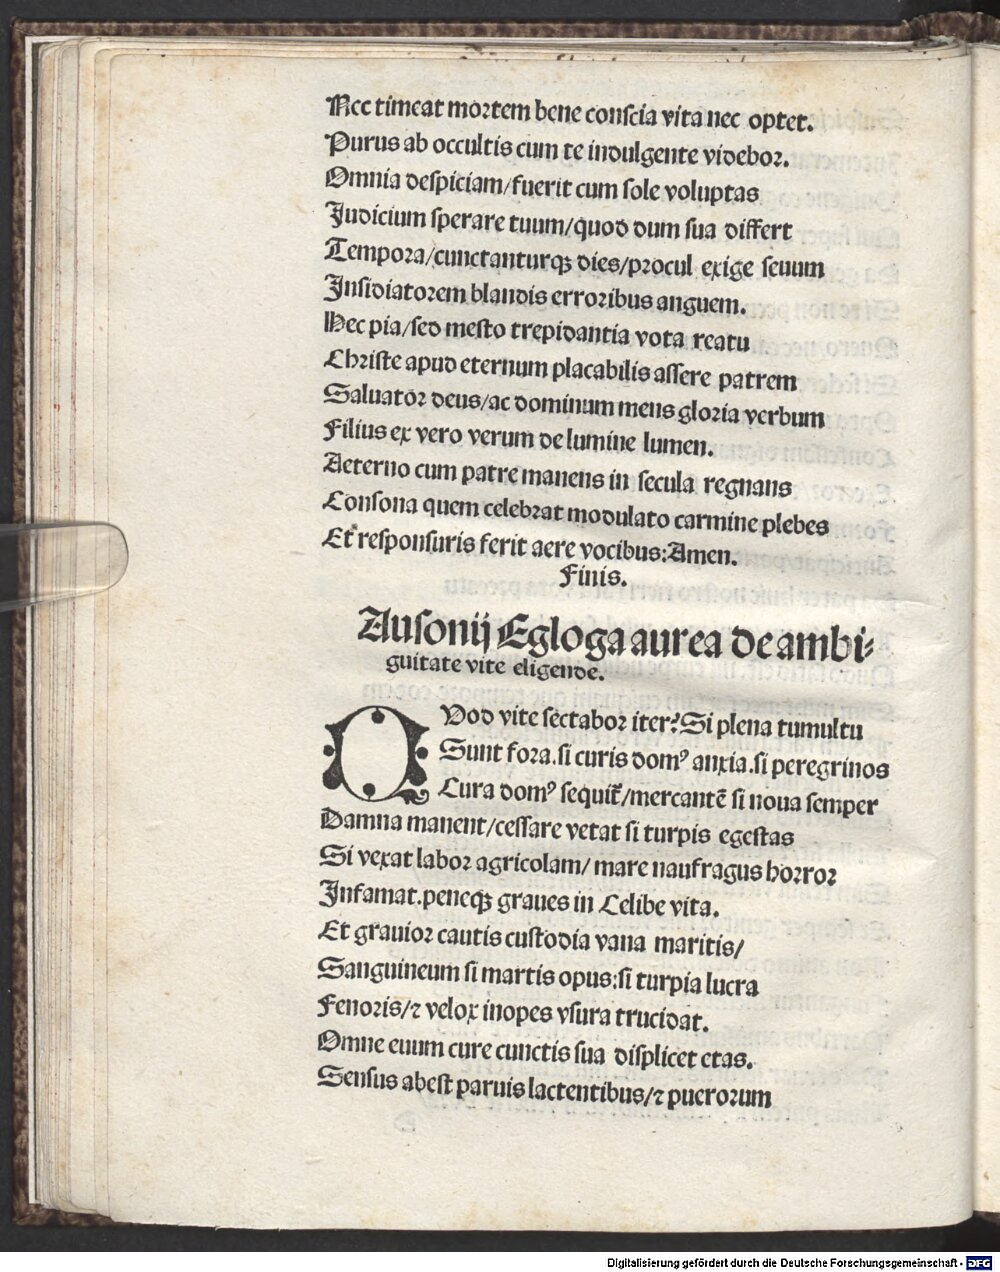 Nec timeat mortem bene conscia vita nec optet.
Purus ab occultis cum te indulgente videbor.
Omnia despiciam/fuerit cum sole voluptas
Judicium sperare tuum/quod dum sua differt
Tempora/cunctanturqꝫ dies/procul exige seuum
Insidiatorem blandis erroribus anguem.
Hec pia/sed mesto trepidantia vota reatu
Christe apud eternum placabilis assere patrem
Saluator deus/ac dominum mens gloria verbum
Filius ex vero verum de lumine lumen.
Aeterno cum patre manens in secula regnans
Consona quem celebrat modulato carmine plebes
Et responsuris ferit aere vocibus:Amen.
Finis.
Ausonij Egloga aurea de ambi⸗
guitate vite eligende.
QVod vite sectabor iter?Si plena tumultu
Sunt fora.si curis domꝰ anxia.si peregrinos
Cura domꝰ sequit᷑/mercantē si noua semper
Damna manent/cessare vetat si turpis egestas
Si vexat labor agricolam/ mare naufragus horror
Infamat.peneqꝫ graues in Celibe vita.
Et grauior cautis custodia vana maritis/
Sanguineum si martis opus:si turpia lucra
Fenoris/⁊ velox inopes vsura trucidat.
Omne euum cure cunctis sua displicet etas.
Sensus abest paruis lactentibus/⁊ puerorum
Digitalisierung gefördert durch die Deutsche Forschungsgemeinschaft - DFG